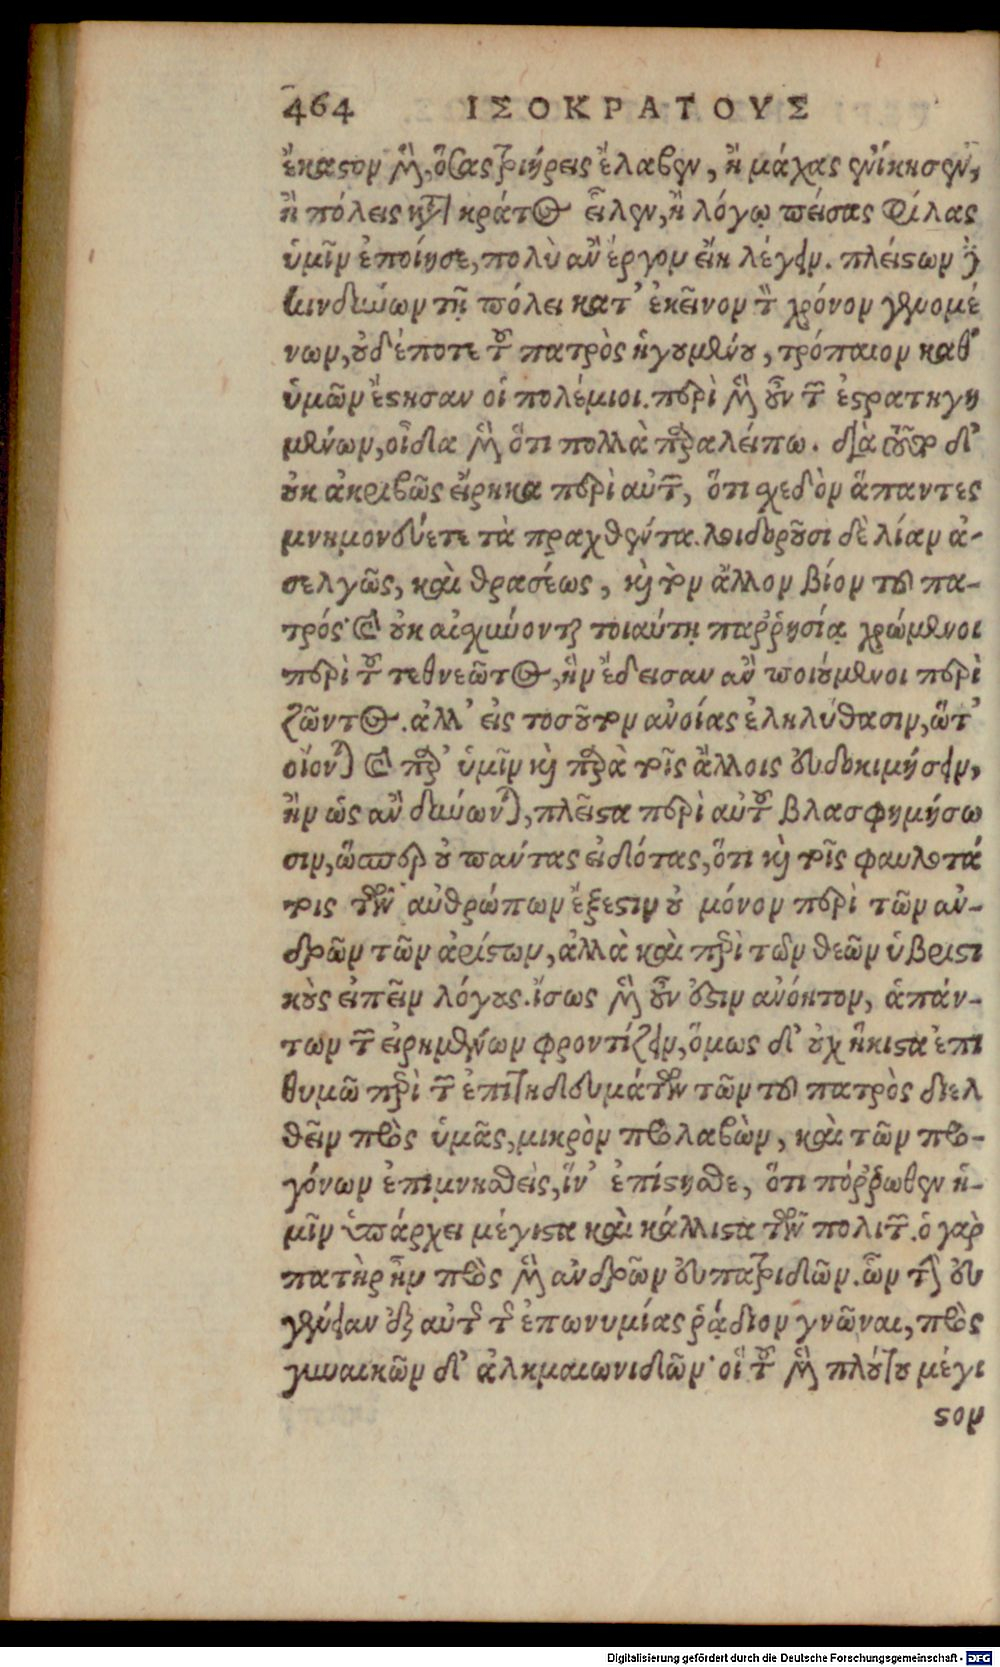 464 ΙΣΟΚΡΑΤΟΥΣ
ἕκαστον μὲν, ὅσας τριήρεις ἔλαβεν, ἢ μάχας ἐνίκησεν,
ἢ πόλεις κατὰ κράτος εἷλεν, ἢ λόγῳ πείσας φίλας
ὑμῖν ἐποίησε, πολὺ ἂν ἔργον εἴη λέγειν. πλείστων δὲ
κινδύνων τῇ πόλει κατ' ἐκεῖνον τὸν χρόνον γενομέ
νων, οὐδέποτε τοῦ πατρὸς ἡγουμένου, τρόπαιον καθ'
ὑμῶν ἔστησαν οἱ πολέμιοι. περὶ μὲν οὖν τῶν ἐστρατηγη
μένων, οἶδα μὲν ὅτι πολλὰ παραλείπω. διὰ τοῦτο δ'
οὐκ ἀκριβῶς εἴρηκα περὶ αὐτῶν, ὅτι σχεδὸν ἅπαντες
μνημονεύετε τὰ πραχθέντα. λοιδοροῦσι δὲ λίαν ἀ-
σελγῶς, καὶ θρασέως, καὶ τὸν ἄλλον βίον τοῦ πα-
τρός· καὶ οὐκ αἰσχύνονται τοιαύτῃ παῤῥησίᾳ χρώμενοι
περὶ τοῦ τεθνεῶτος, ἣν ἔδεισαν ἂν ποιούμενοι περὶ
ζῶντος. ἀλλ' εἰς τοσοῦτον ἀνοίας ἐληλύθασιν, ὥστ'
οἴονται καὶ παρ' ὑμῖν καὶ παρὰ τοῖς ἄλλοις εὐδοκιμήσειν,
ἢν ὡς ἂν δύνωνται, πλεῖστα περὶ αὐτοῦ βλασφημήσω
σιν, ὥσπερ οὐ πάντας εἰδότας, ὅτι καὶ τοῖς φαυλοτά
τοις τῶν ἀνθρώπων ἔξεστιν οὐ μόνον περὶ τῶν ἀν-
δρῶν τῶν ἀρίστων, ἀλλὰ καὶ περὶ τῶν θεῶν ὑβριστι
κοὺς εἰπεῖν λόγους. ἴσως μὲν οὖν ἐστιν ἀνόητον, ἁπάν-
των τῶν εἰρημένων φροντίζειν, ὅμως δ' οὐχ ἥκιστα ἐπι
θυμῶ περὶ τῶν ἐπιτηδευμάτων τῶν τοῦ πατρὸς διελ
θεῖν πρὸς ὑμᾶς, μικρὸν προλαβὼν, καὶ τῶν προ-
γόνων ἐπιμνησθεὶς, ἵν' ἐπίστησθε, ὅτι πόῤῥωθεν ἡ-
μῖν ὑπάρχει μέγιστα καὶ κάλλιστα τῶν πολιτῶν. ὁ γὰρ
πατὴρ ἦν πρὸς μὲν ἀνδρῶν εὐπατριδῶν. ὧν τὴν εὐ
γένειαν ἐξ αὐτῆς τῆς ἐπωνυμίας ῥᾴδιον γνῶναι, πρὸς
γυναικῶν δ' ἀλκμαιωνιδῶν· οἳ τοῦ μὲν πλούτου μέγι
στον
Digitalisierung gefördert durch die Deutsche Forschungsgemeinschaft - DFG